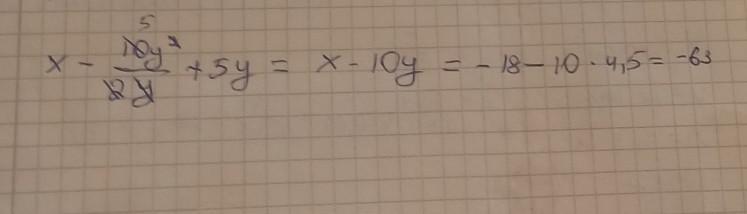 x - \frac{\overset{5}{\cancel{10}}y^{\cancel{2}}}{\cancel{2}\cancel{y}} + 5y = x - 10y = -18 - 10 · 4,5 = -63